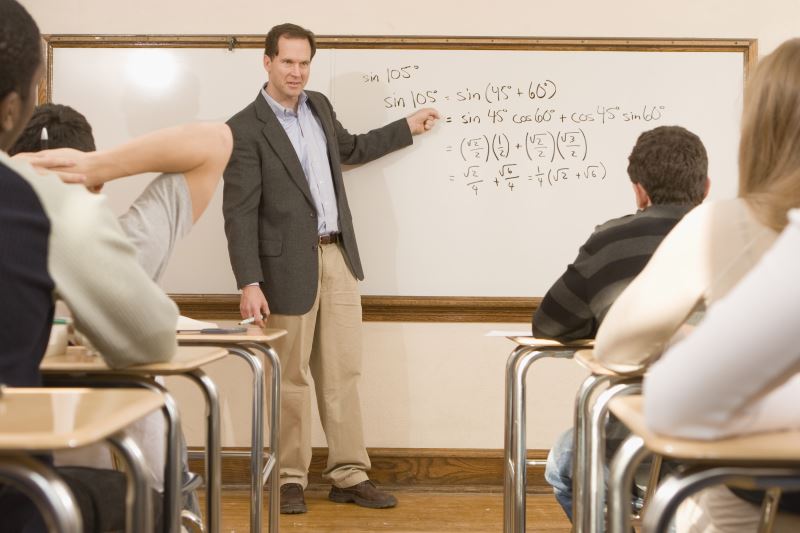 sin 105°
sin 105° = sin (45° + 60°)
= sin 45° cos 60° + cos 45° sin 60°
= (√2/2)(1/2) + (√2/2)(√3/2)
= √2/4 + √6/4 = 1/4(√2 + √6)